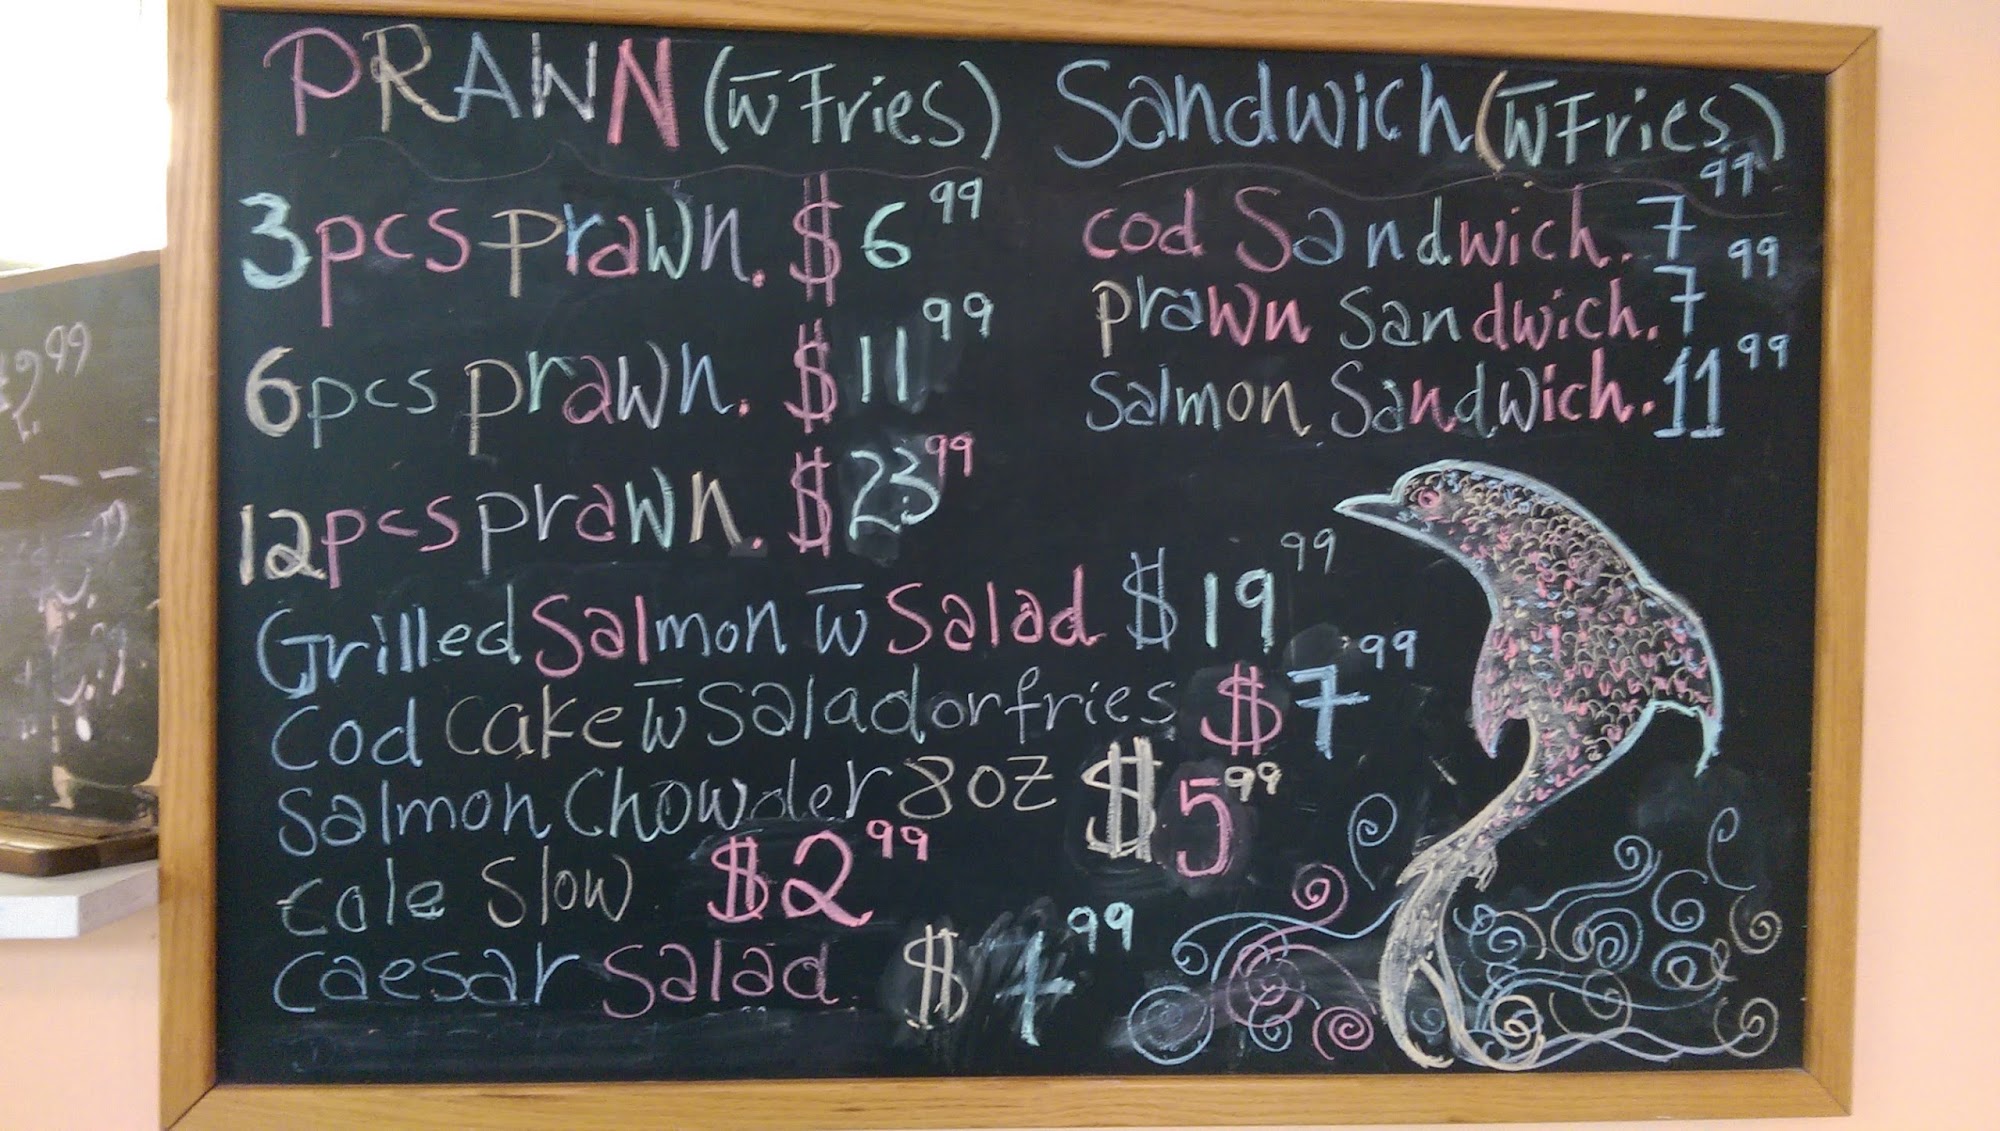 PRAWN (w̅ Fries)
3pcs prawn. $6 99
6pcs prawn. $11 99
12pcs prawn. $23 99
Sandwich (w̅ Fries)
cod Sandwich. 7 99
prawn Sandwich. 7 99
Salmon Sandwich. 11 99
Grilled Salmon w̅ Salad $19 99
Cod Cake w̅ Salad or fries $7 99
Salmon Chowder 8oz $5 99
Cole Slow $2 99
Caesar Salad $4 99
99